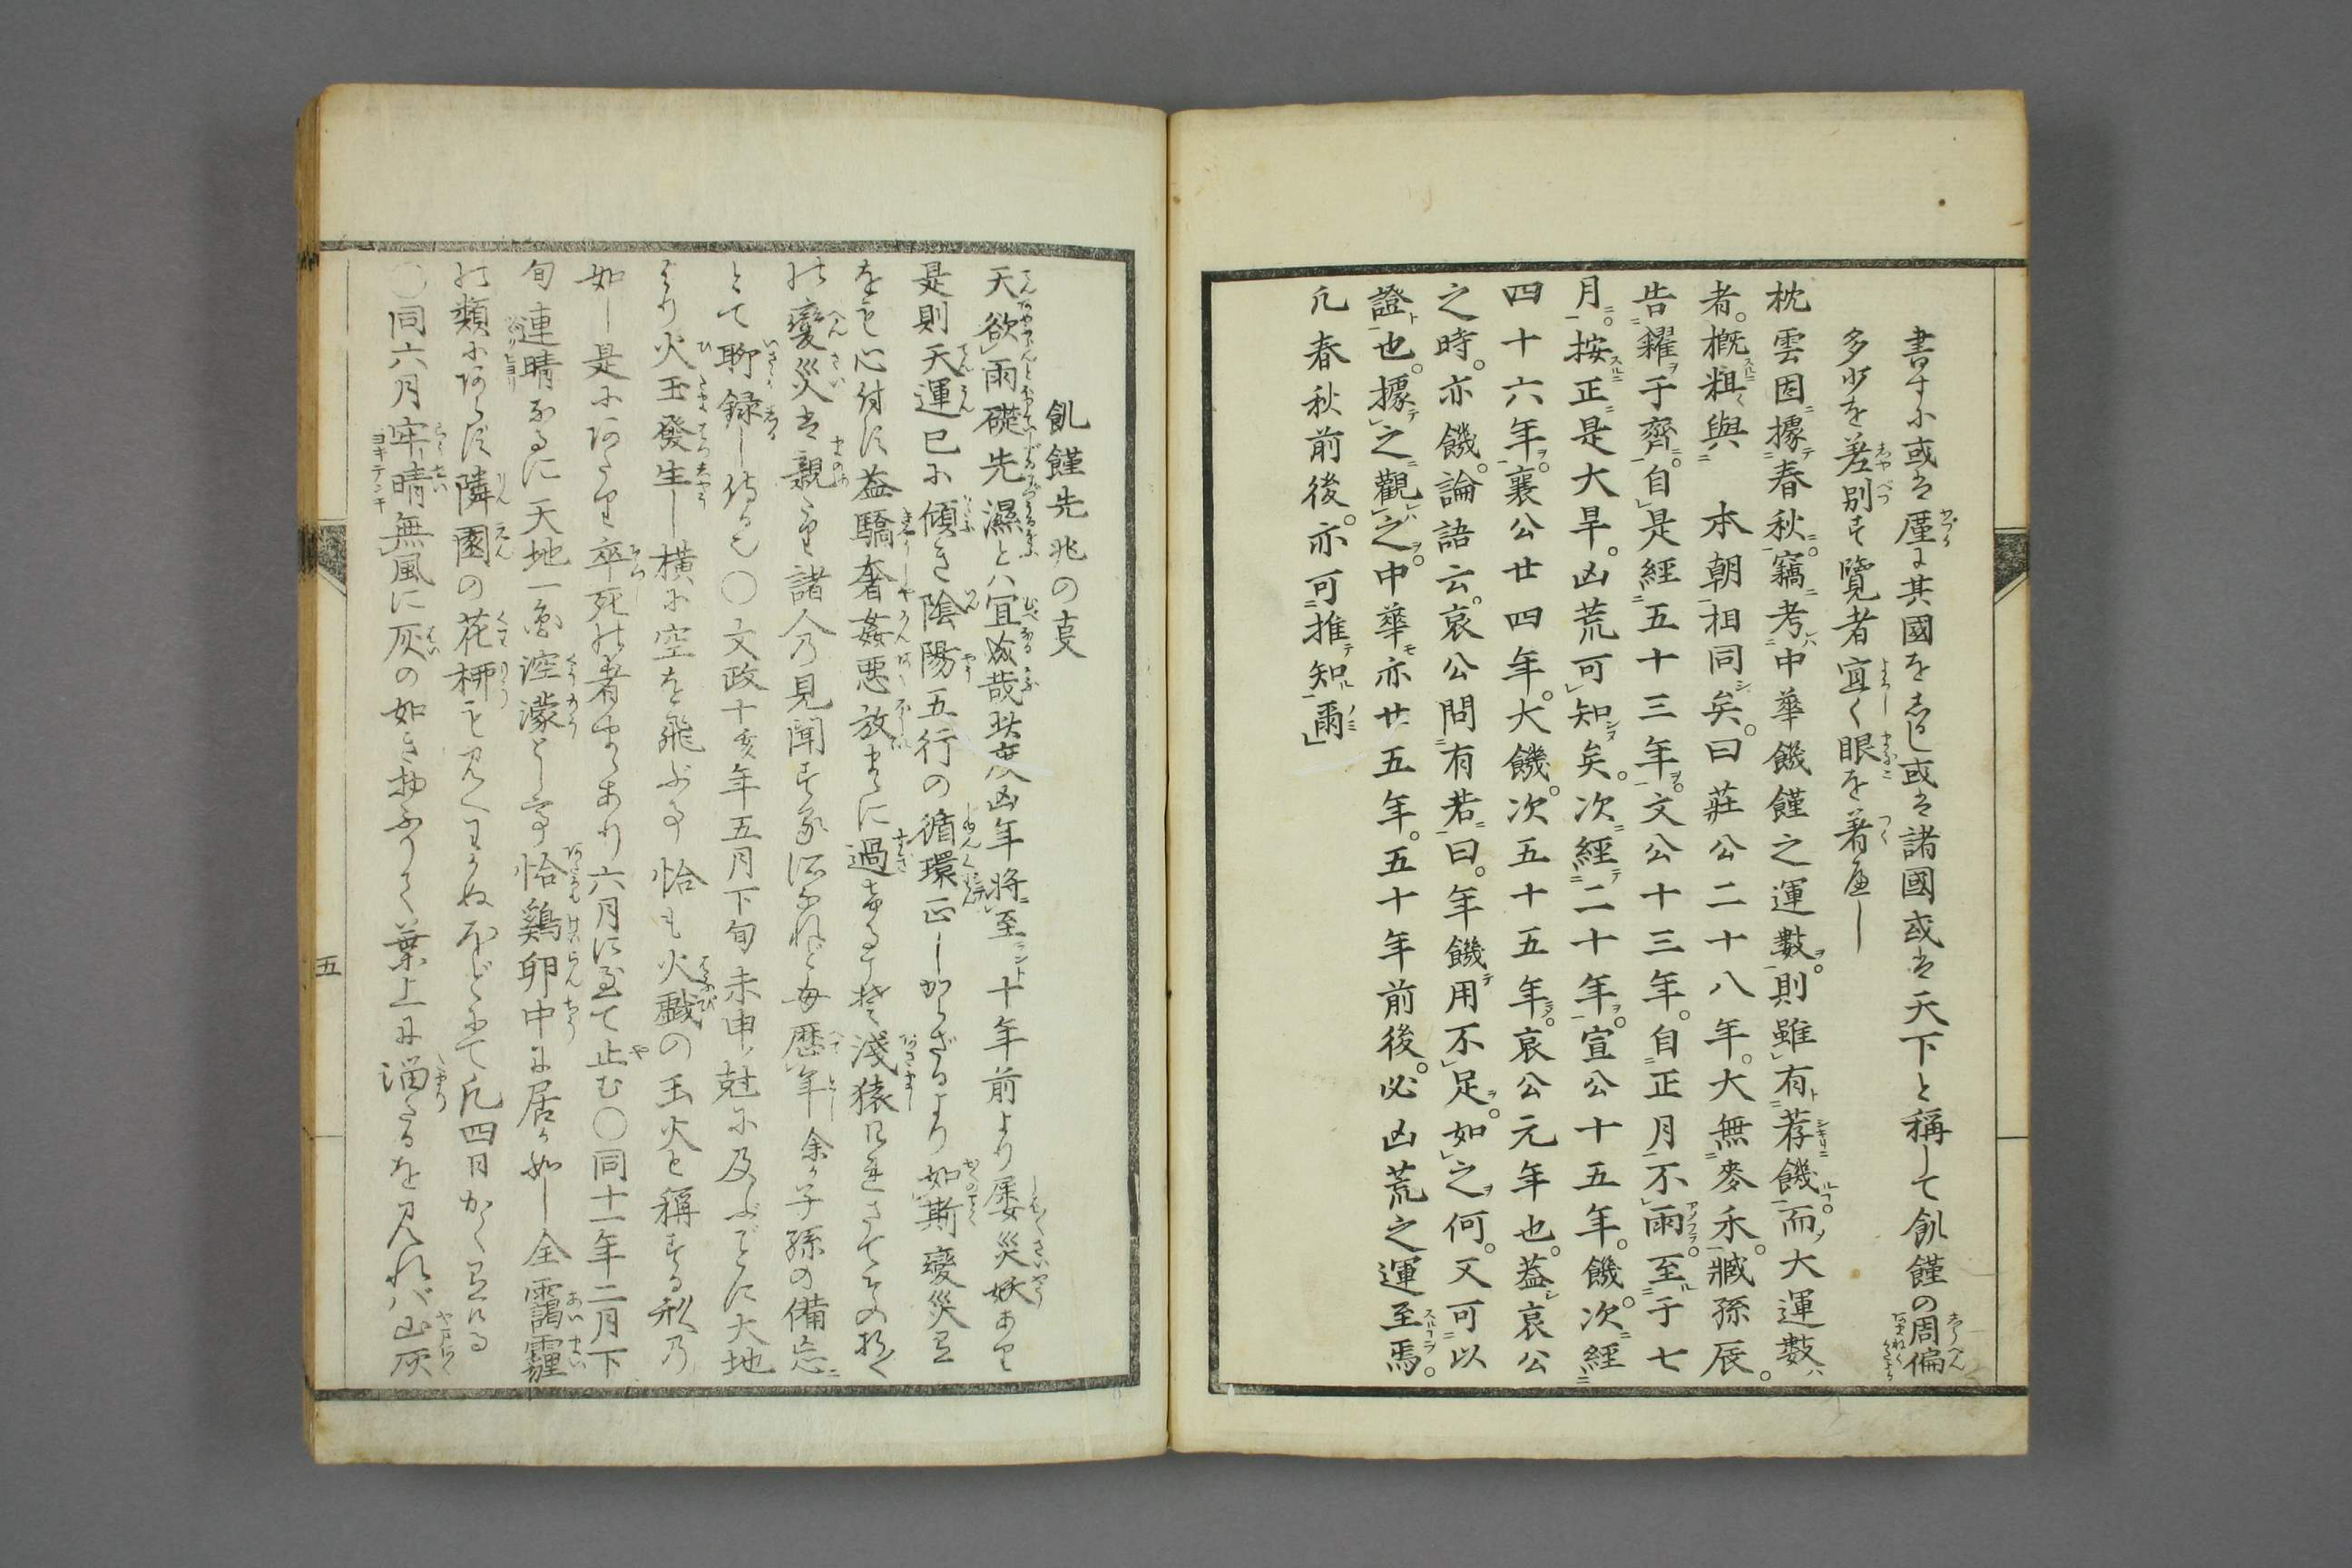 書すに或は厪に其國をしるし或は諸國或は天下と稱して飢饉の周偏
多少を差別す覽者宜く眼を著べし
枕雲因據春秋。竊考中華饑饉之運數。則雖有荐饑。而大運數
者。概粗與　本朝相同矣。曰莊公二十八年。大無麥禾。臧孫辰。
告糴于齊。自是經五十三年。文公十三年。自正月不雨。至于七
月。按正是大旱。凶荒可知矣。次經二十年。宣公十五年。饑。次經
四十六年。襄公廿四年。大饑。次五十五年。哀公元年也。蓋哀公
之時。亦饑。論語云。哀公問有若曰。年饑用不足。如之何。又可以
證也。據之觀之。中華亦廿五年。五十年前後。必凶荒之運至焉。
凡春秋前後。亦可推知爾
飢饉先兆の支
天欲雨礎先濕とハ宜成哉此度凶年將至十年前より屡災妖あり
是則天運已に傾き陰陽五行の循環正しからざるより如斯變災
をも心付す益驕奢姦惡放まゝに過
變災は親り諸人乃見聞する所なれど毎歴年余が子孫の備忘
とて聊録し侍る也〇文政十亥年五月下旬未申尅に及ぶころに大地
より火玉發生し横に空を飛ぶ事恰も火戲の玉火と稱する
如し是にあたり卒死の者まゝあり六月に至て止む〇同十一年二月下
旬連晴なるに天地一色涳濛として恰鷄卵中に居か如し全靄霾
の類にあらす隣園の花柳も見へわかぬほどにて凡四日かく
〇同六月牢晴無風に灰の如き物ふりて葉上に溜たるを見れバ山灰
五